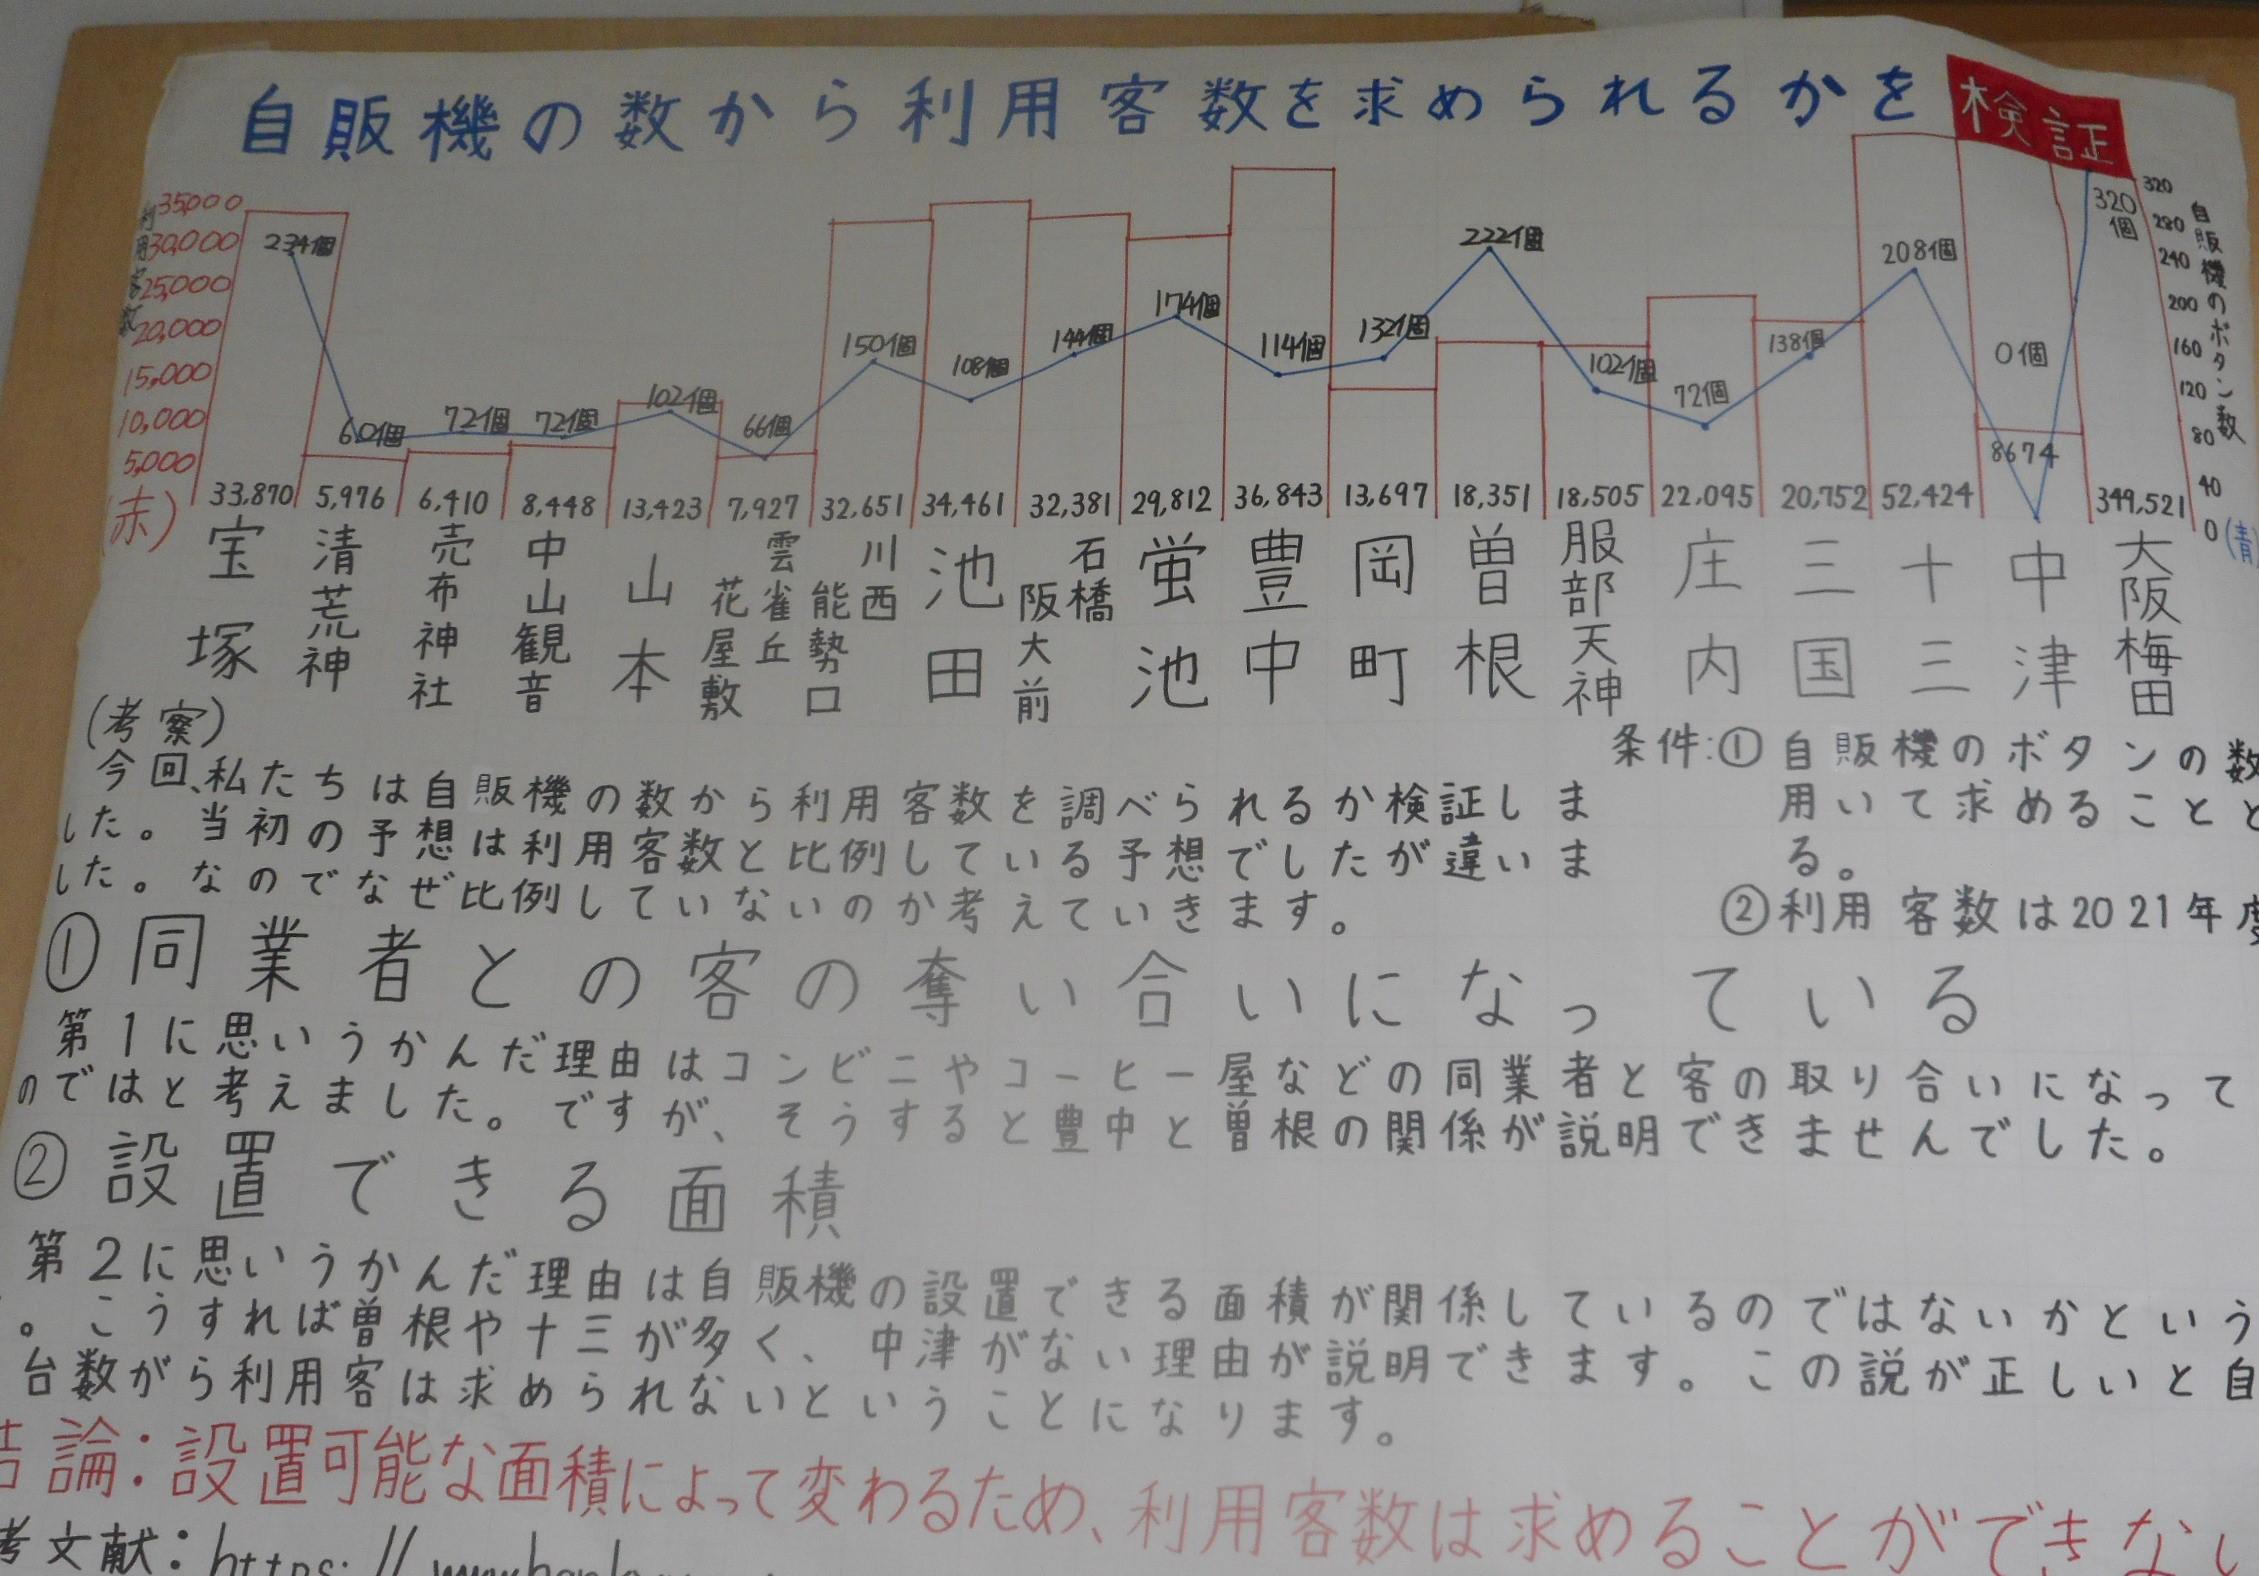 自販機の数から利用客数を求められるかを検証
利用客数
35,000
30,000
25,000
20,000
15,000
10,000
5,000
(赤)
234個 60個 72個 72個 102個 66個 150個 108個 144個 174個 114個 132個 222個 102個 72個 138個 208個 0個 320個
320
280
240
200
160
120
80
40
0
(青
自販機のボタン数
33,870 5,976 6,410 8,448 13,423 7,927 32,651 34,461 32,381 29,812 36,843 13,697 18,351 18,505 22,095 20,752 52,424 8674 349,521
宝塚
清荒神
売布神社
中山観音
山本
雲雀丘花屋敷
川西能勢口
池田
石橋阪大前
蛍池
豊中
岡町
曽根
服部天神
庄内
三国
十三
中津
大阪梅田
(考察)
今回、私たちは自販機の数から利用客数を調べられるか検証しま
した。当初の予想は利用客数と比例している予想でしたが違いま
した。なのでなぜ比例していないのか考えていきます。
条件:①自販機のボタンの数
用いて求めることと
る。
②利用客数は2021年度
①同業者との客の奪い合いになっている
第1に思いうかんだ理由はコンビニやコーヒー屋などの同業者と客の取り合いになって
のではと考えました。ですが、そうすると豊中と曽根の関係が説明できませんでした。
②設置できる面積
第2に思いうかんだ理由は自販機の設置できる面積が関係しているのではないかという
。こうすれば曽根や十三が多く、中津がない理由が説明できます。この説が正しいと自
台数がら利用客は求められないということになります。
結論:設置可能な面積によって変わるため、利用客数は求めることができない
考文献:https://www.han